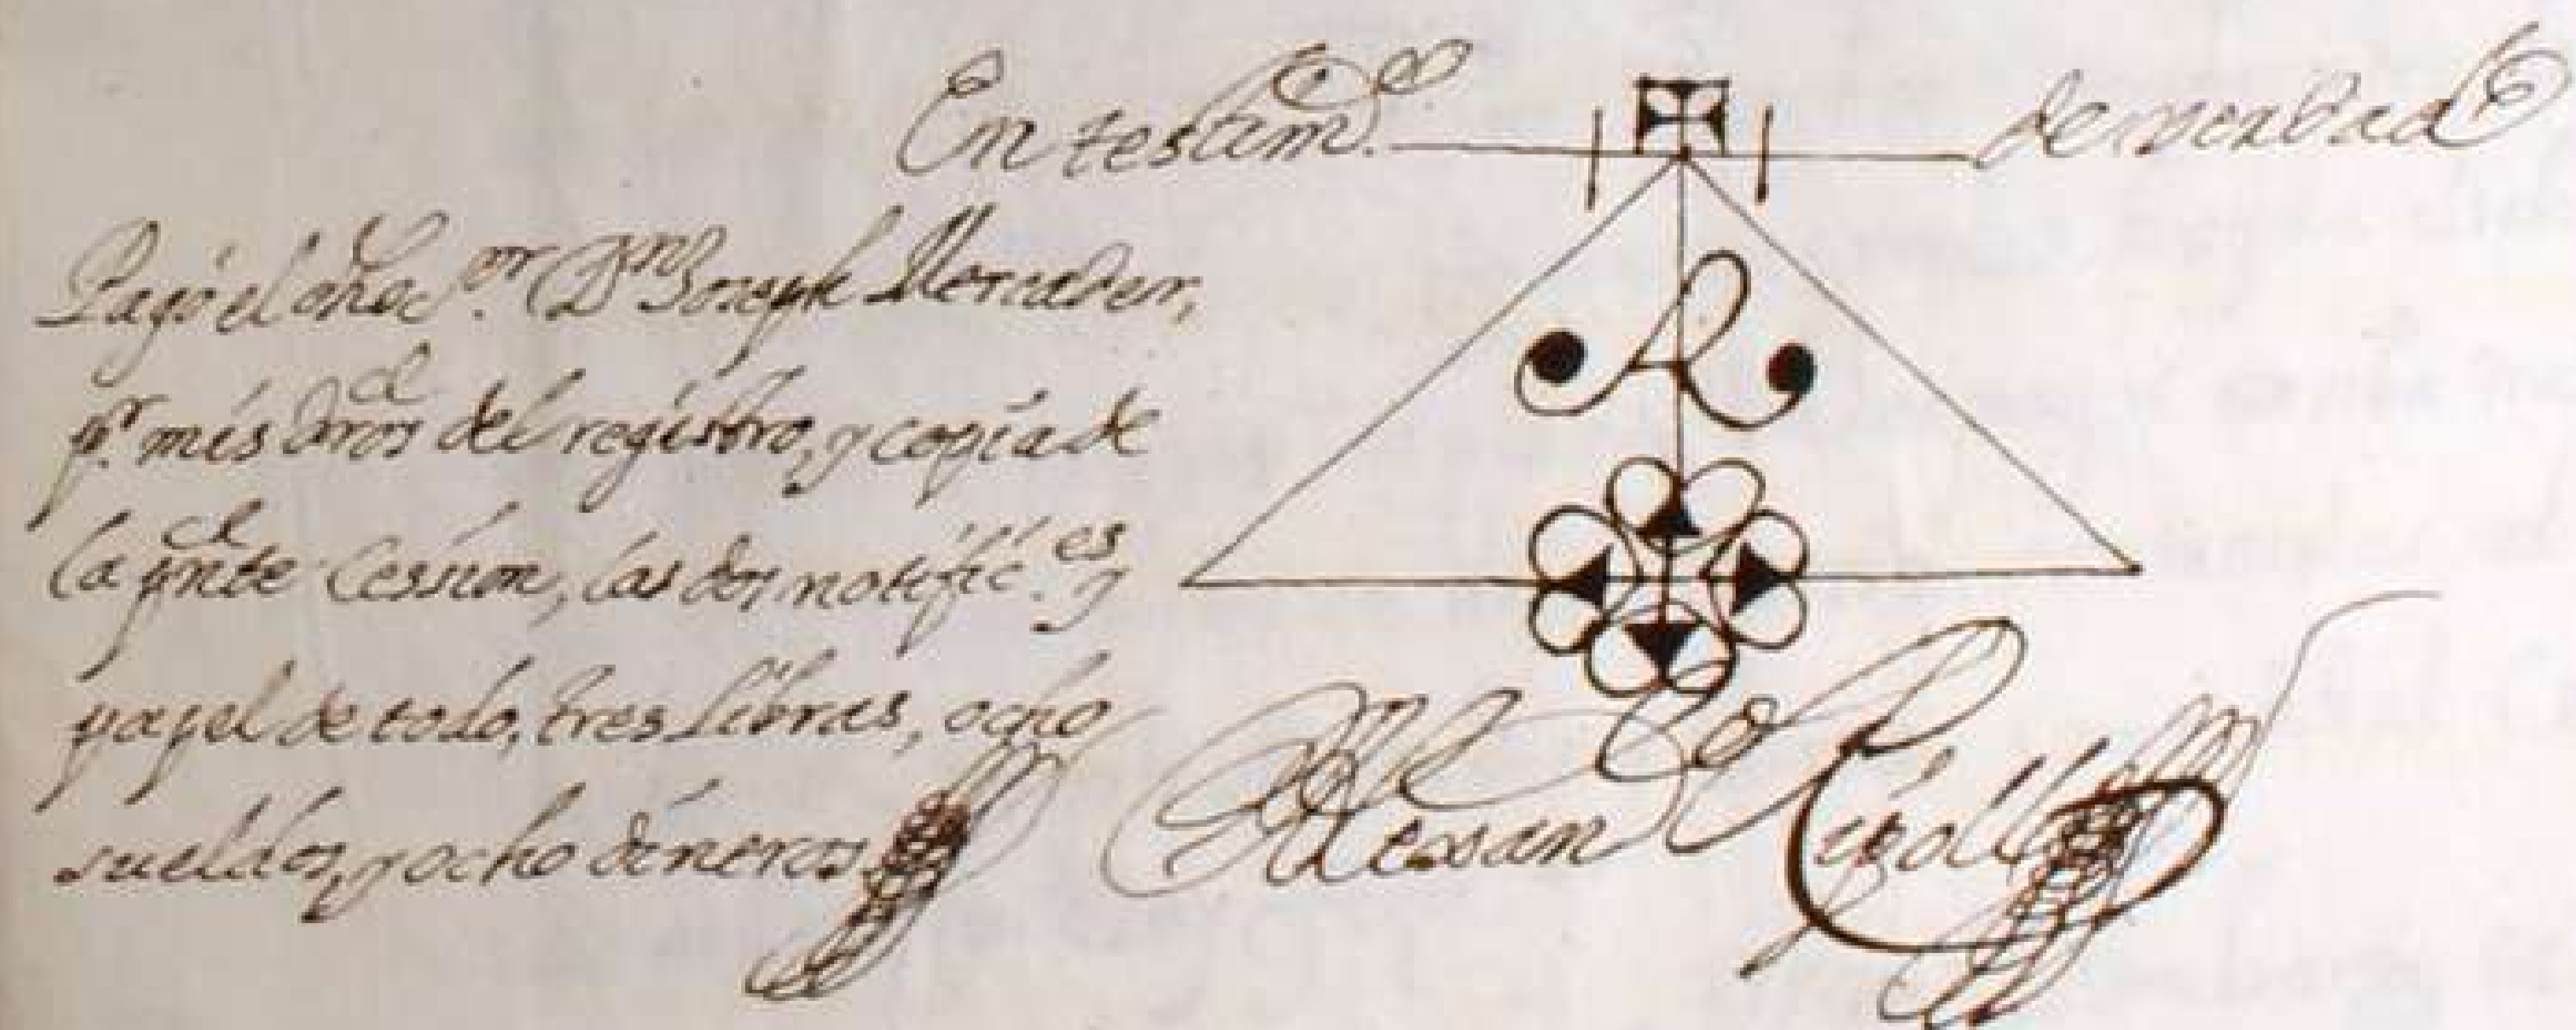 En testim.º de verdad
Pagó el Dr. Dn Joseph Mercader,
pr. mis dros del registro, y copia de
la pnte Cession, las dos notific.es y
papel de todo, tres Libras, ocho
sueldos, y ocho dineros
Alexandro Ripoll